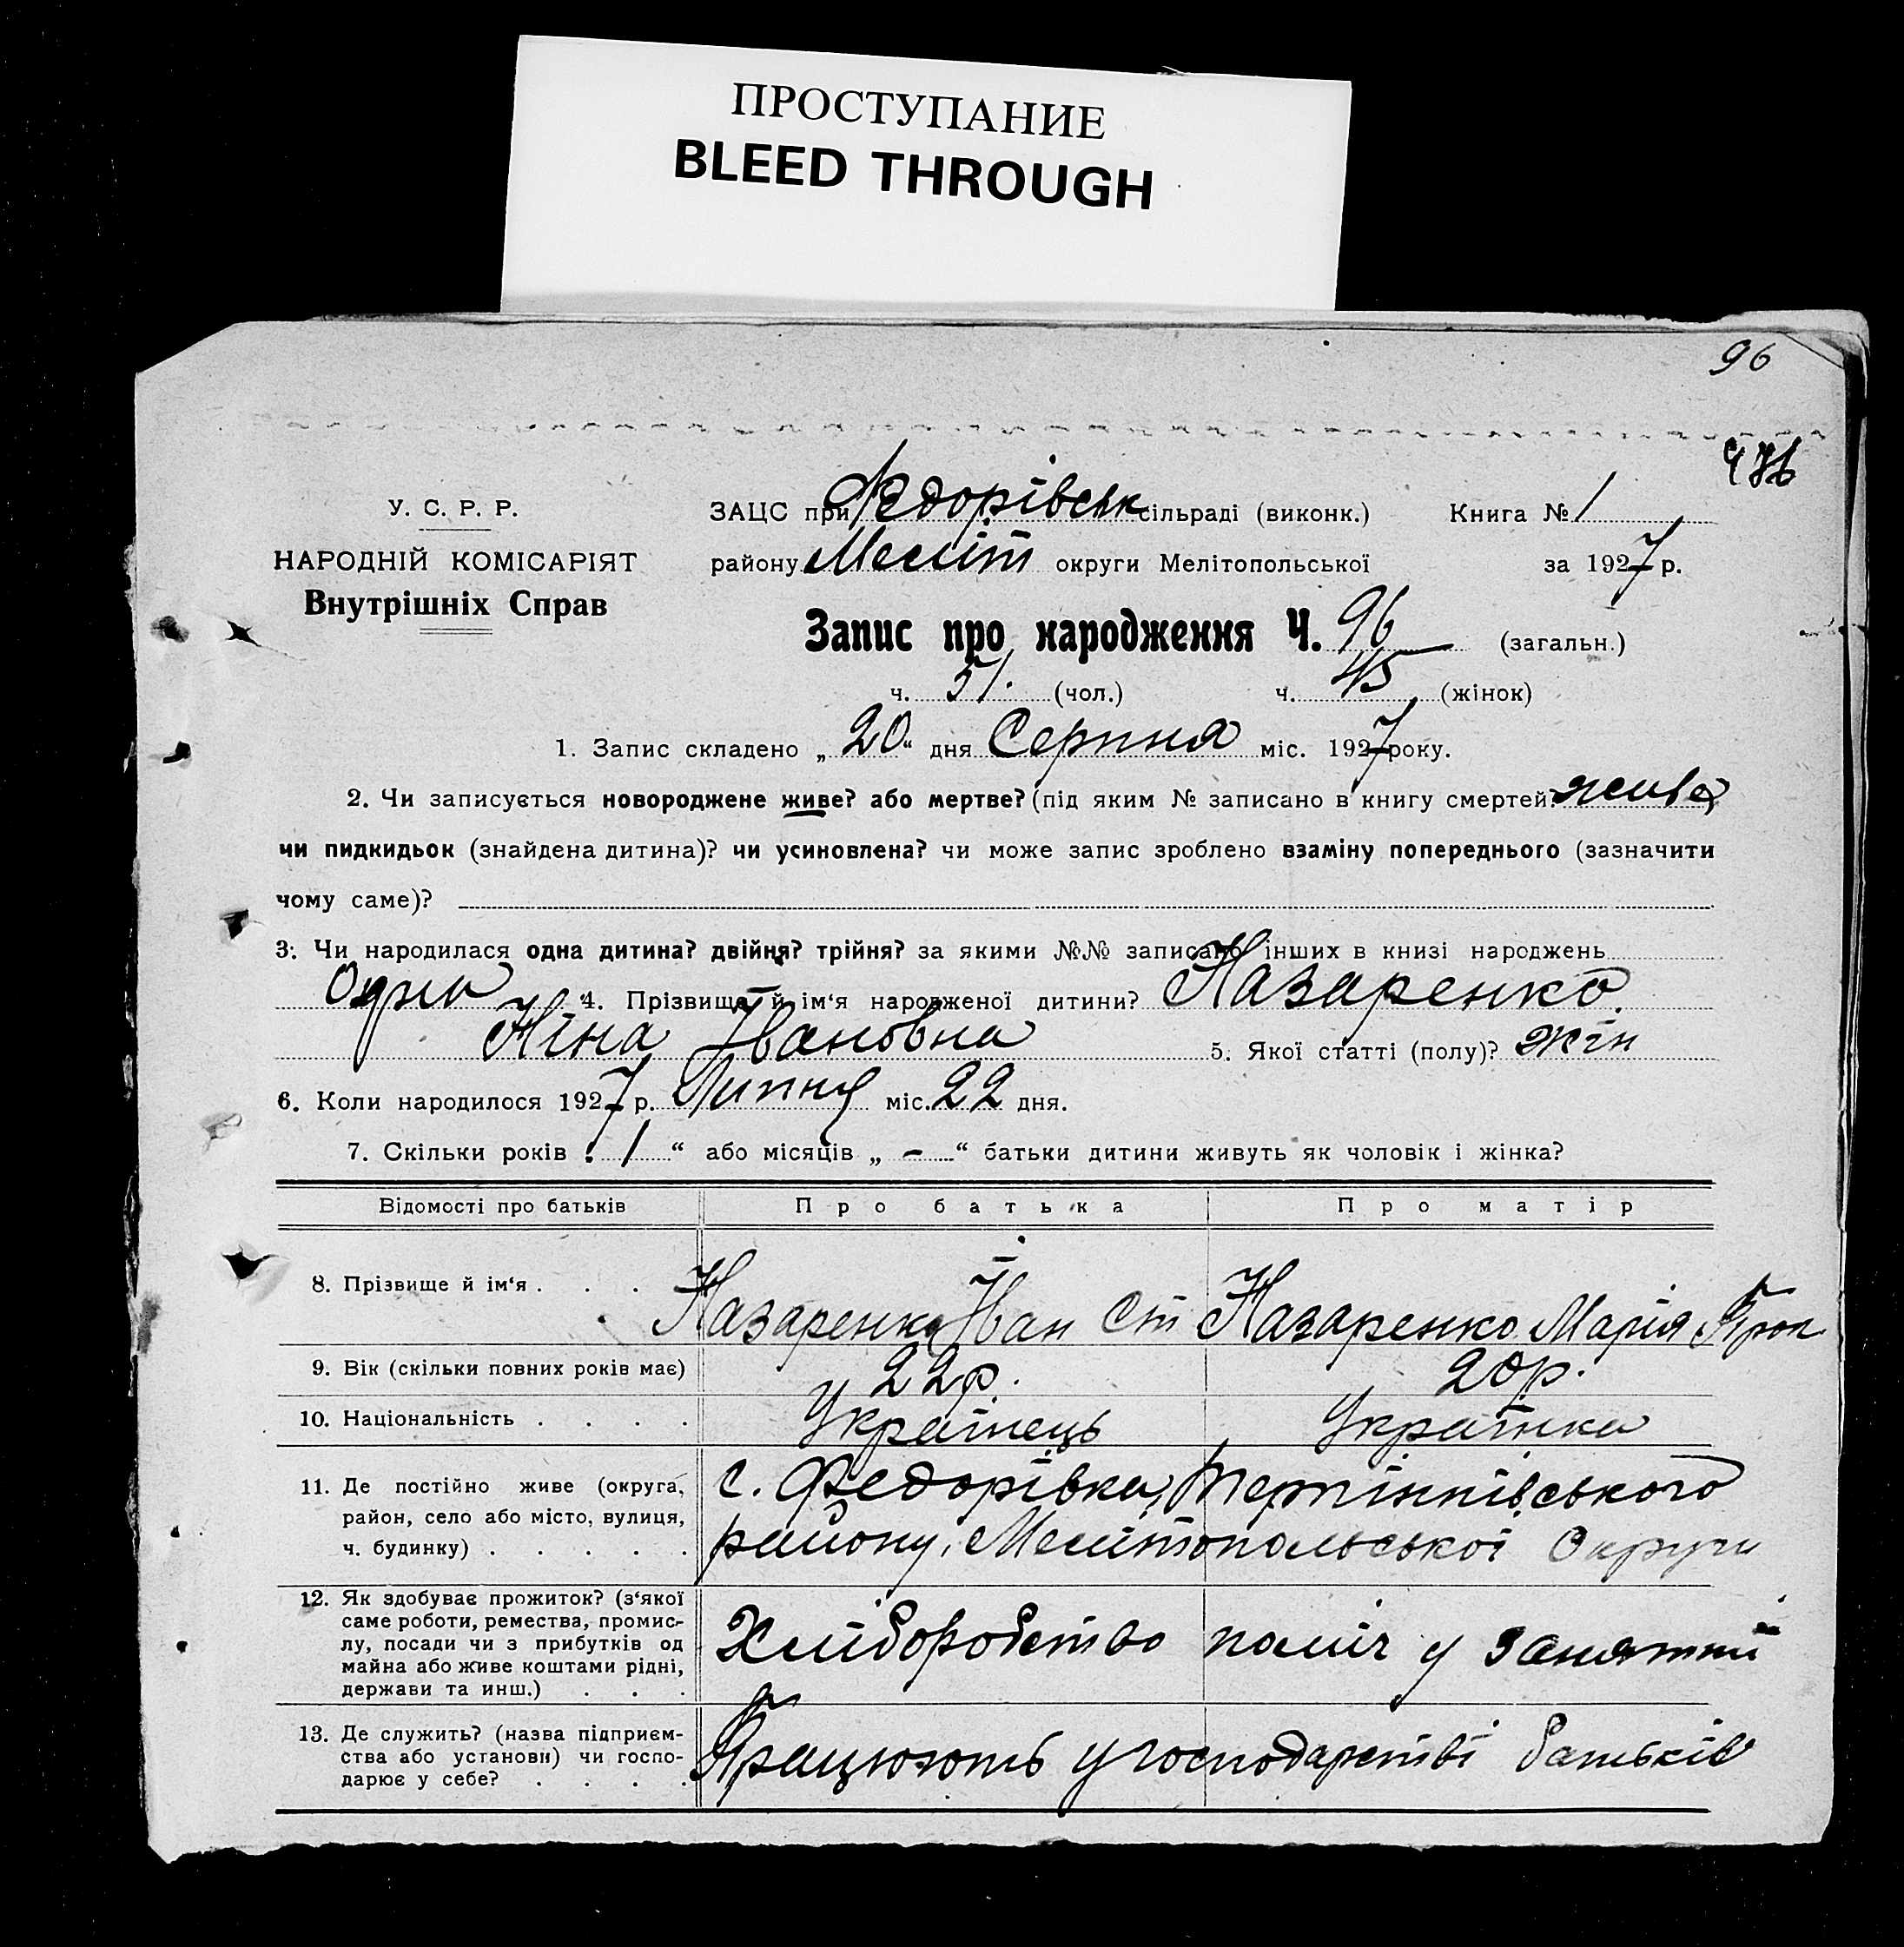 ПРОСТУПАНИЕ
BLEED THROUGH
96
У. С. Р. Р.
НАРОДНІЙ КОМІСАРІЯТ
Внутрішніх Справ
ЗАЦС при Федорівськ сільраді (виконк.) Книга № 1
району Меліт округи Мелітопольської за 1927 р.
Запис про народження Ч. 96 (загальн.)
ч. 51. (чол.) ч. 45 (жінок)
1. Запис складено „20“ дня Серпня міс. 1927 року.
2. Чи записується новороджене живе? або мертве? (під яким № записано в книгу смертей? живе
чи пидкидьок (знайдена дитина)? чи усиновлена? чи може запис зроблено взаміну попереднього (зазначити
чому саме)?
3. Чи народилася одна дитина? двійня? трійня? за якими №№ записано інших в книзі народжень
Одна 4. Прізвище й ім‘я народженої дитини? Назаренко
Ніна Івановна 5. Якої статті (полу)? жін
6. Коли народилося 1927 р. Липня міс. 22 дня.
7. Скільки років „ 1 “ або місяців „ - “ батьки дитини живуть як чоловік і жінка?
Відомості про батьків Про батька Про матір
8. Прізвище й ім‘я . . . Назаренко Іван Ст Назаренко Марія Прок
9. Вік (скільки повних років має) 22р. 20р.
10. Національність . . . . Українець Українка
11. Де постійно живе (округа,
район, село або місто, вулиця,
ч. будинку) . . . . .
с. Федорівка, Терпінківського
району, Мелітопольської Округи
12. Як здобуває прожиток? (з‘якої
саме роботи, ремества, промис-
лу, посади чи з прибутків од
майна або живе коштами рідні,
держави та инш.) . . .
Хліборобство поміч у занятті
13. Де служить? (назва підприєм-
ства або установи) чи госпо-
дарює у себе? . . . .
Працюють у господарстві батьків